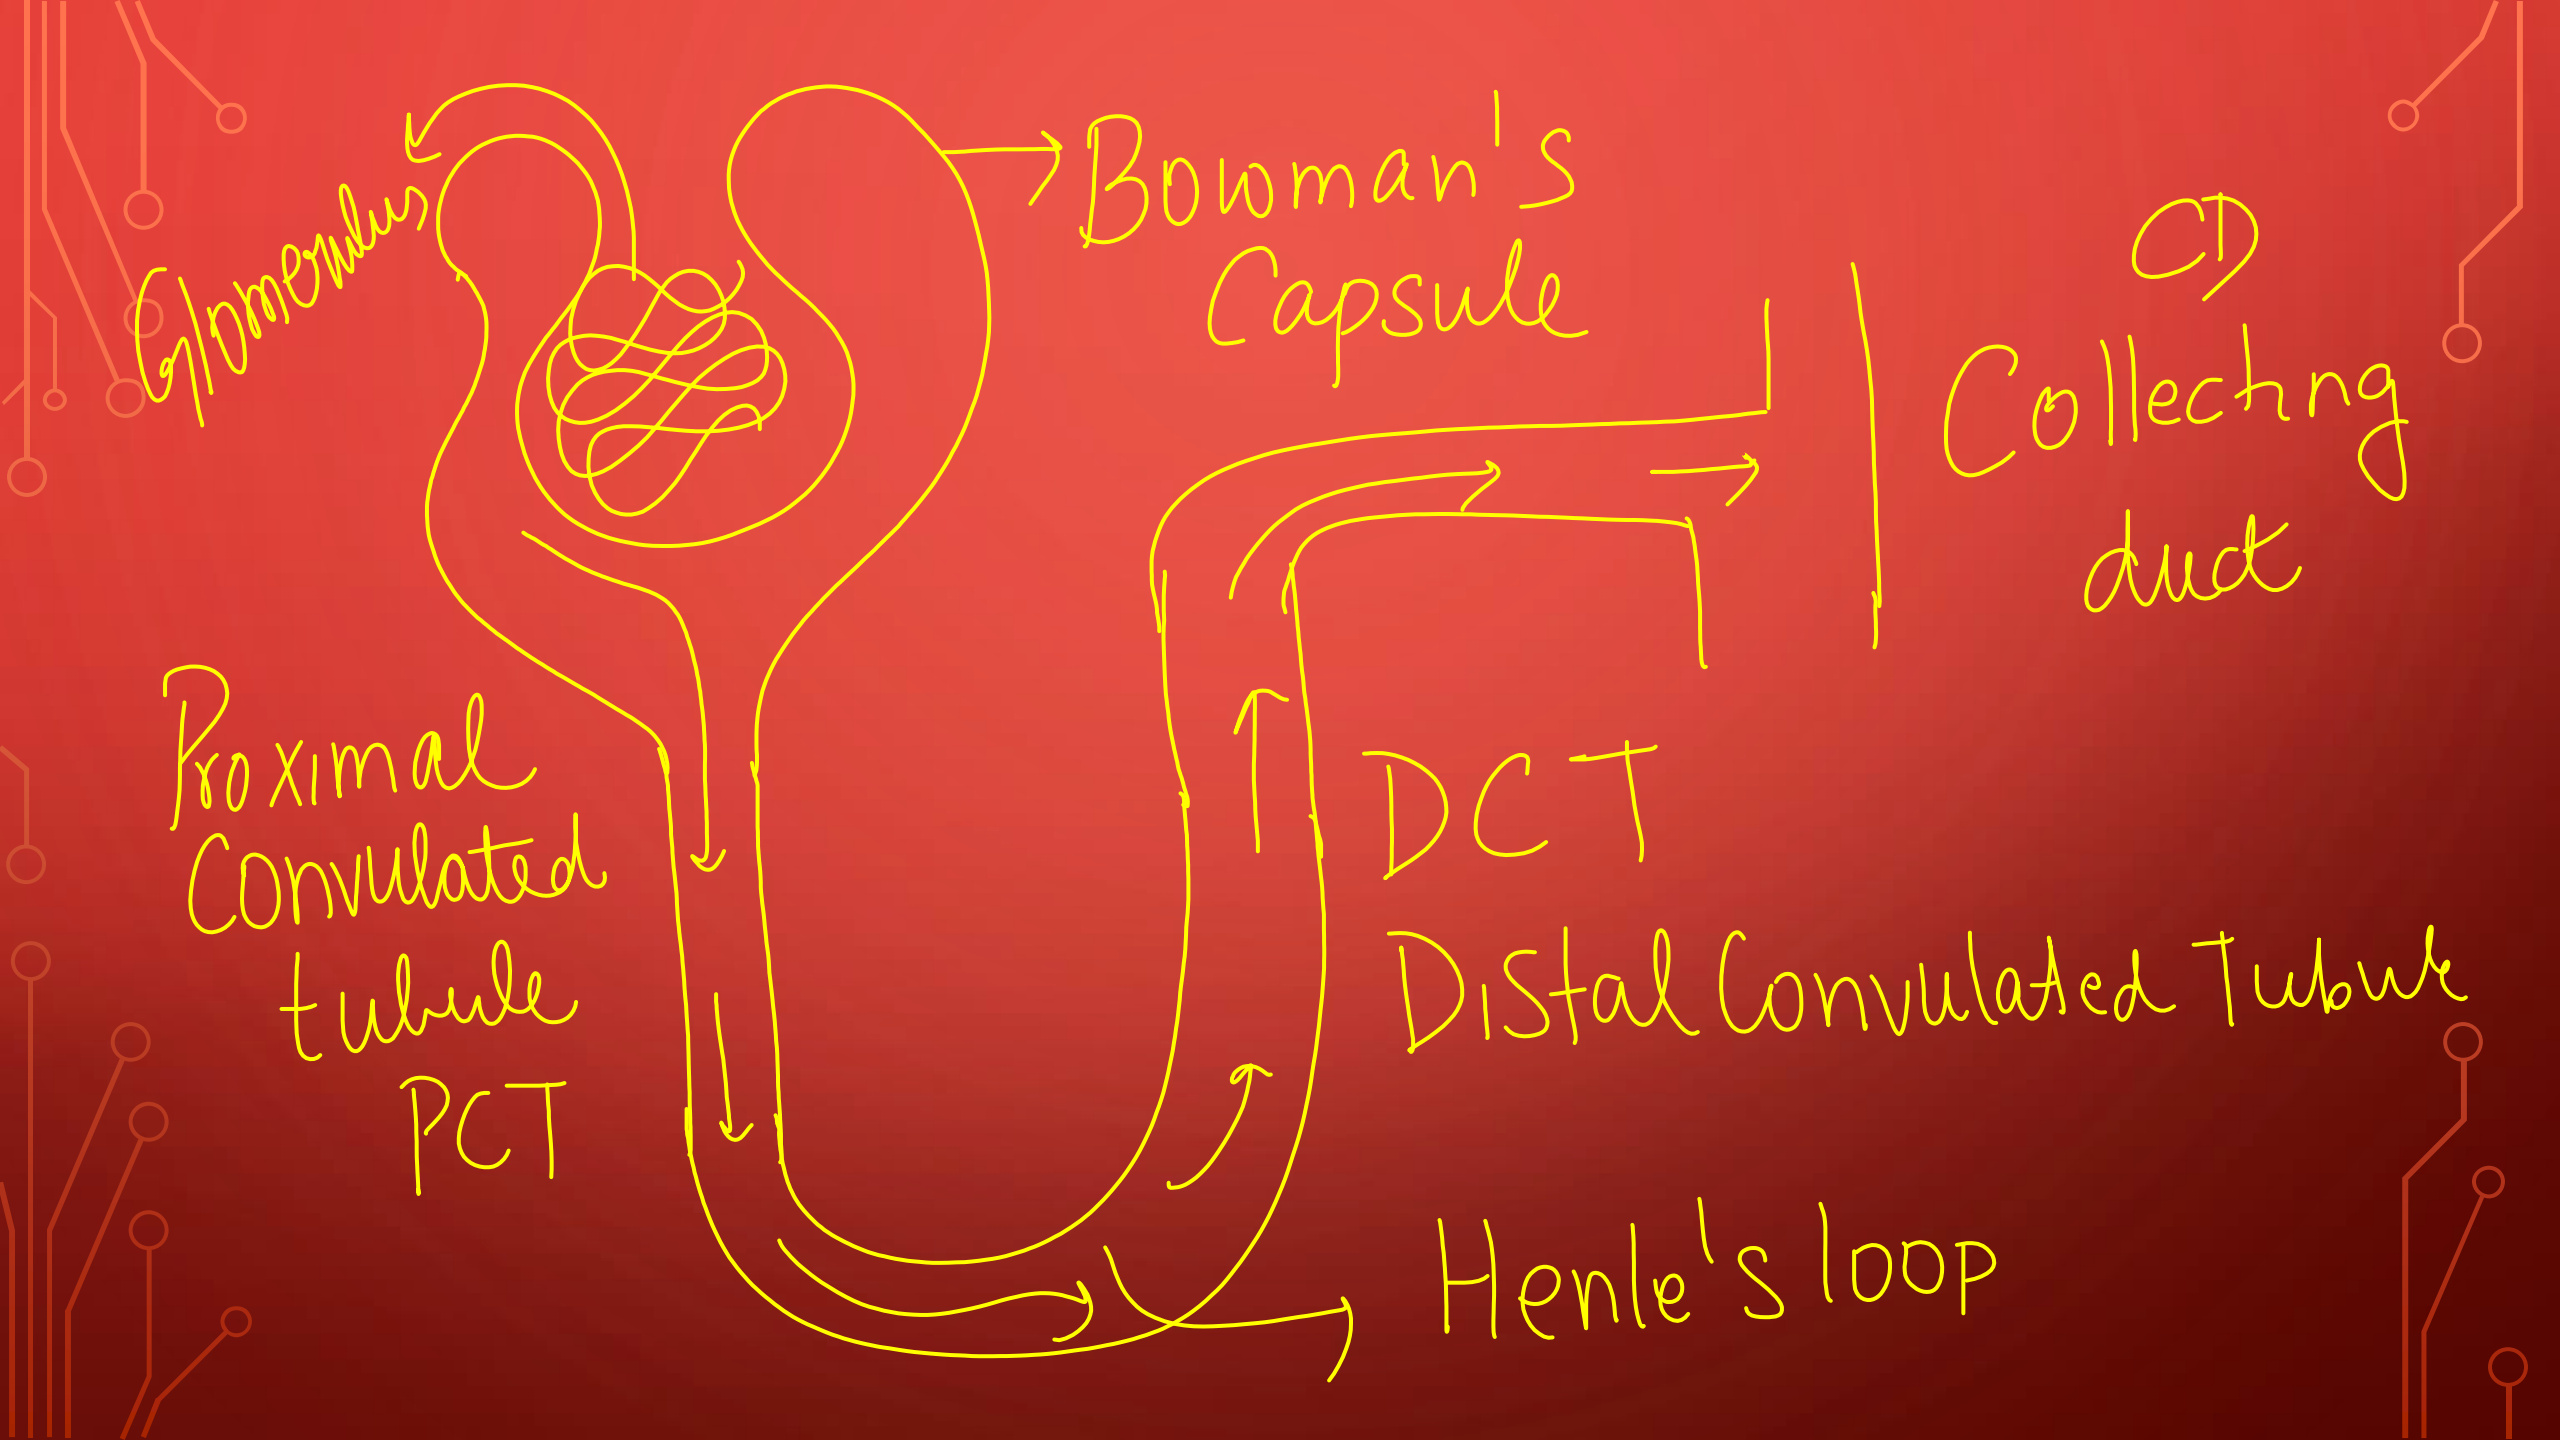 Glomerulus
Bowman's
Capsule
CD
Collecting
duct
Proximal
Convulated
tubule
PCT
DCT
Distal Convulated Tubule
Henle's loop